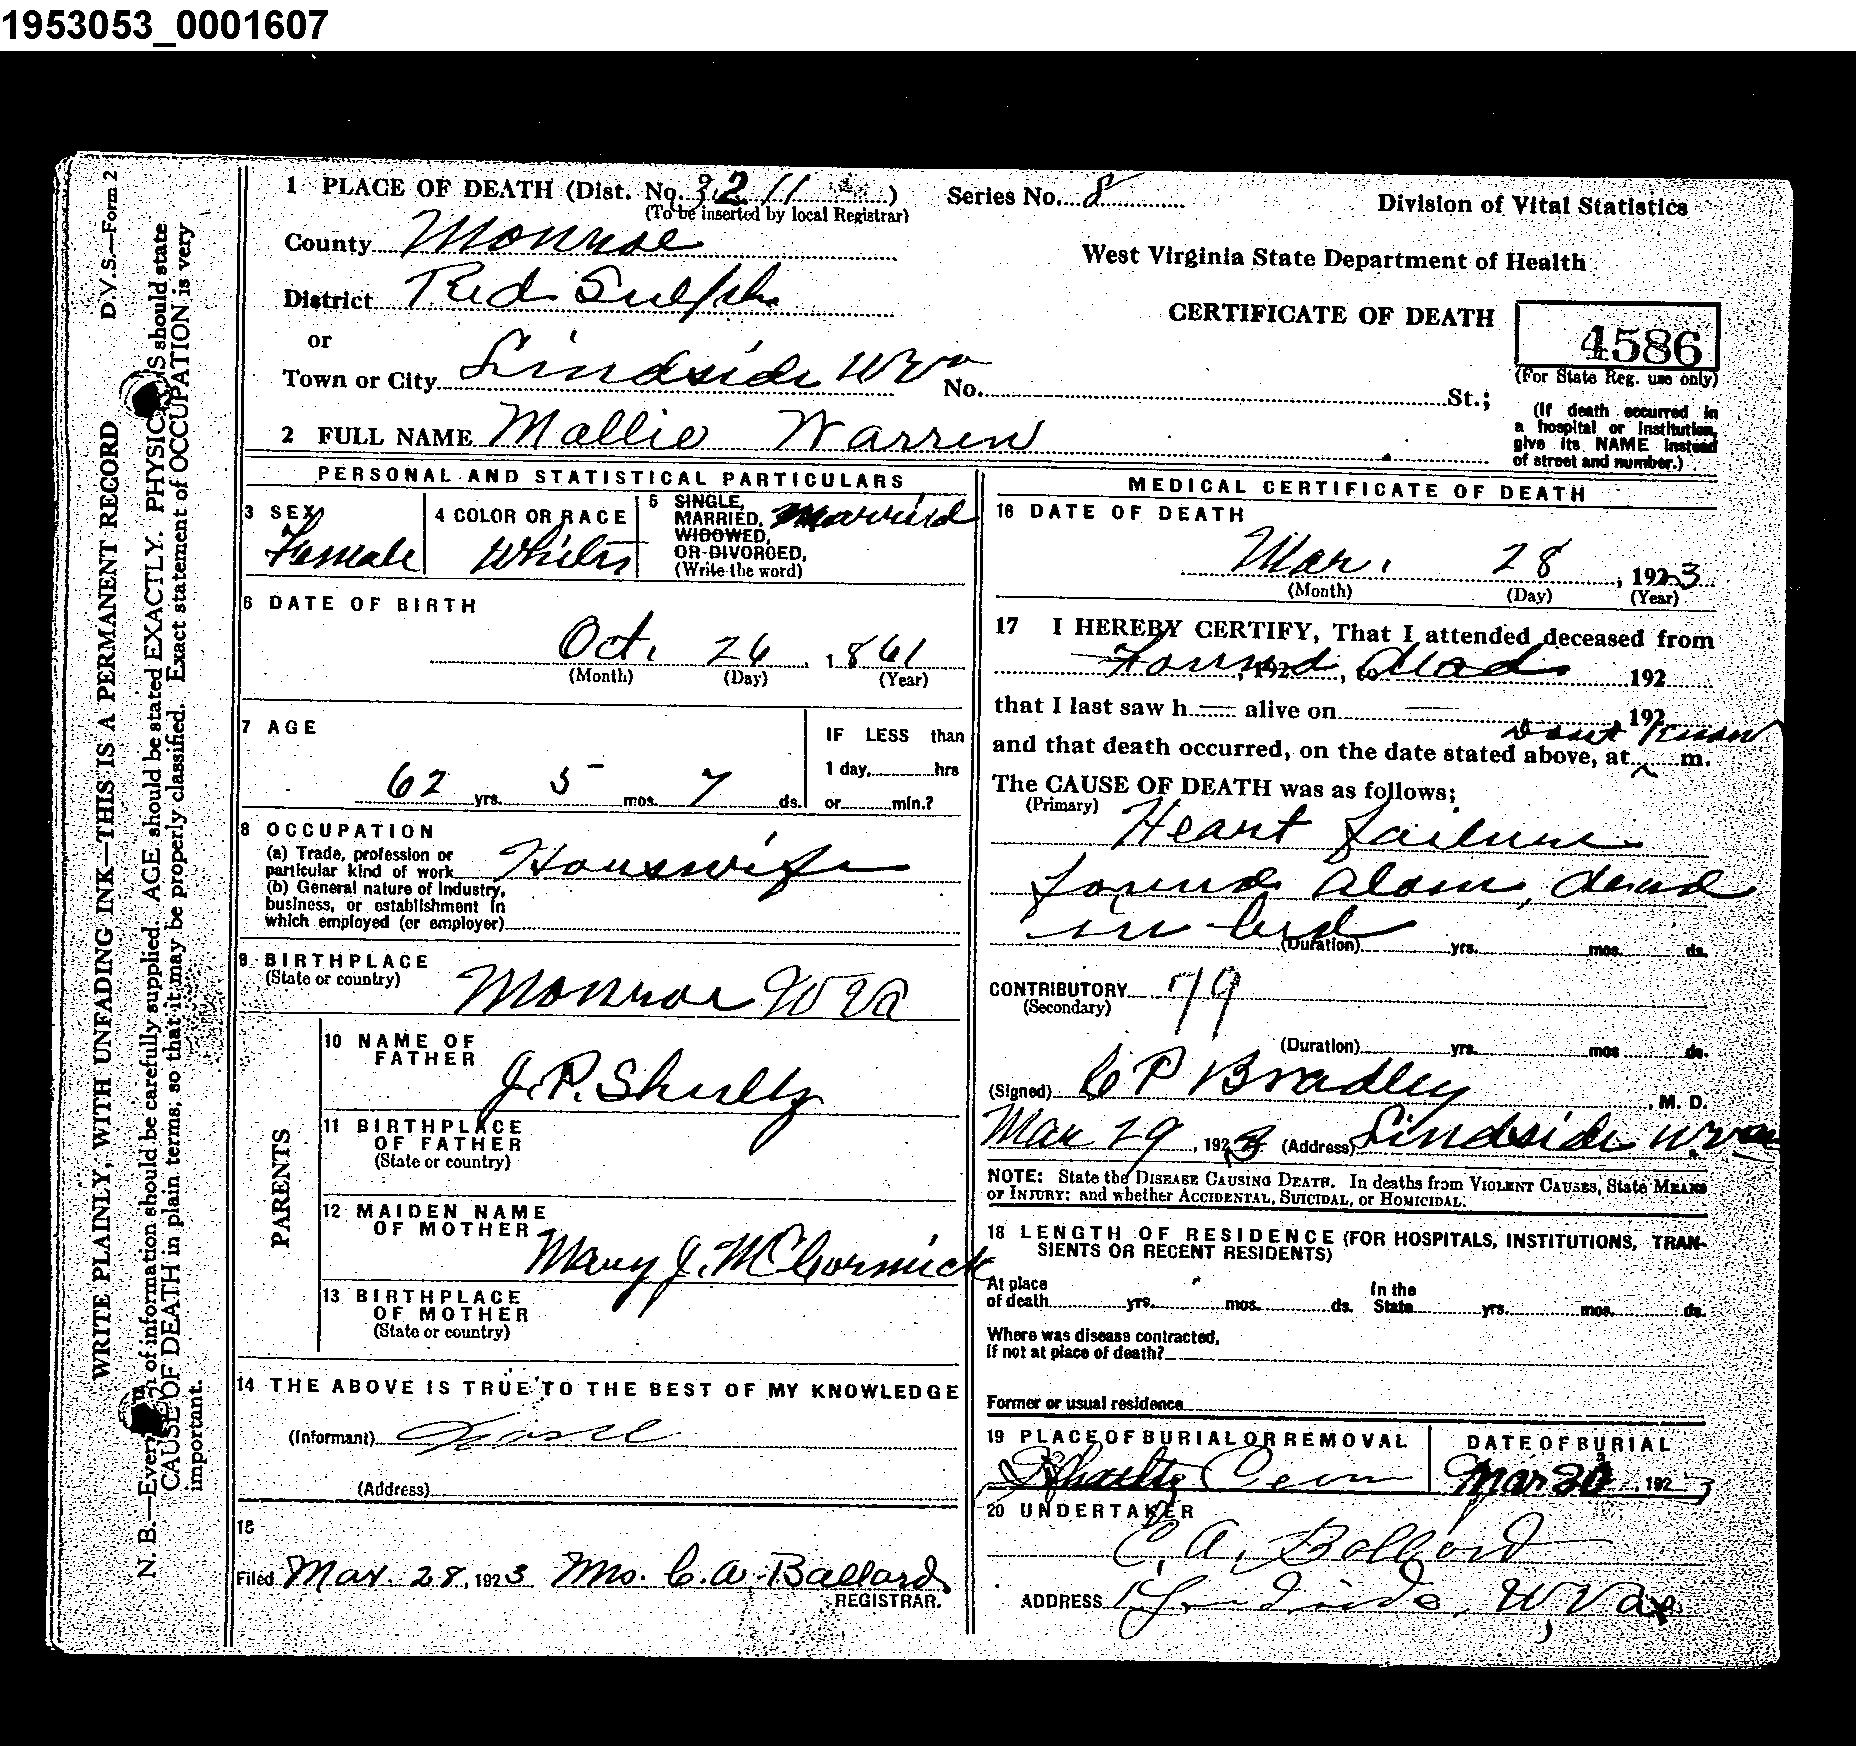 1953053_0001607
D.V.S.—Form 2
WRITE PLAINLY, WITH UNFADING INK—THIS IS A PERMANENT RECORD
N. B.—Every of information should be carefully supplied. AGE should be stated EXACTLY. PHYSICIANS should state
CAUSE OF DEATH in plain terms, so that it may be properly classified. Exact statement of OCCUPATION is very
important.
1 PLACE OF DEATH (Dist. No. 3211)
(To be inserted by local Registrar)
Series No. 8
Division of Vital Statistics
County Monroe
West Virginia State Department of Health
District Red Sulph
CERTIFICATE OF DEATH
4586
(For State Reg. use only)
or
Town or City Lindside W Va No. St.;
(If death occurred in
a hospital or institution,
give its NAME instead
of street and number.)
2 FULL NAME Mallie Warren
PERSONAL AND STATISTICAL PARTICULARS
3 SEX
Female
4 COLOR OR RACE
White
5 SINGLE,
MARRIED,
WIDOWED,
OR DIVORCED,
(Write the word)
Married
6 DATE OF BIRTH
Oct. 26, 1861
(Month) (Day) (Year)
7 AGE
62 yrs. 5 mos. 7 ds.
IF LESS than
1 day, hrs
or min.?
8 OCCUPATION
(a) Trade, profession or
particular kind of work Houswife
(b) General nature of industry,
business, or establishment in
which employed (or employer)
9 BIRTHPLACE
(State or country)
Monroe W Va
PARENTS
10 NAME OF
FATHER
J. P. Shultz
11 BIRTHPLACE
OF FATHER
(State or country)
12 MAIDEN NAME
OF MOTHER
Mary J. McCormick
13 BIRTHPLACE
OF MOTHER
(State or country)
14 THE ABOVE IS TRUE TO THE BEST OF MY KNOWLEDGE
(Informant)
(Address)
15
Filed Mar. 28, 1923 Mrs. C. A. Ballard
REGISTRAR.
MEDICAL CERTIFICATE OF DEATH
16 DATE OF DEATH
Mar. 28, 1923
(Month) (Day) (Year)
17 I HEREBY CERTIFY, That I attended deceased from
Found, 192, to dead 192
that I last saw h — alive on — 192
Dont Know
and that death occurred, on the date stated above, at m.
The CAUSE OF DEATH was as follows;
(Primary)
Heart failure
found alone, dead
in bed
(Duration) yrs. mos. ds.
CONTRIBUTORY 79
(Secondary)
(Duration) yrs. mos ds.
(Signed) C P Bradley, M. D.
Mar 29, 1923 (Address) Lindside W. Va
NOTE: State the DISEASE CAUSING DEATH. In deaths from VIOLENT CAUSES, State MEANS
OF INJURY; and whether ACCIDENTAL, SUICIDAL, or HOMICIDAL.
18 LENGTH OF RESIDENCE (FOR HOSPITALS, INSTITUTIONS, TRAN-
SIENTS OR RECENT RESIDENTS)
At place
of death yrs. mos. ds.
In the
State yrs. mos. ds.
Where was disease contracted,
if not at place of death?
Former or usual residence
19 PLACE OF BURIAL OR REMOVAL
Shultz Cem
DATE OF BURIAL
Mar 30, 1923
20 UNDERTAKER
C. A. Ballard
ADDRESS Lindside, W, Va